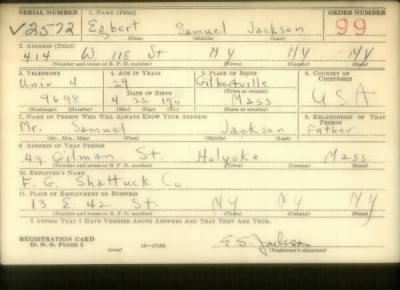 SERIAL NUMBER 1. NAME (Print) ORDER NUMBER
V2572 Egbert Samuel Jackson 99
(First) (Middle) (Last)
2. ADDRESS (Print)
414 W 118 St NY NY NY
(Number and street or R. F. D. number) (Town) (County) (State)
3. TELEPHONE 4. AGE IN YEARS 5. PLACE OF BIRTH 6. COUNTRY OF CITIZENSHIP
Univ 4 29 Gilbertville
DATE OF BIRTH (Town or county)
9698 4 22 1911 Mass U.S.A
(Exchange) (Number) (Mo.) (Day) (Yr.) (State or country)
7. NAME OF PERSON WHO WILL ALWAYS KNOW YOUR ADDRESS 8. RELATIONSHIP OF THAT PERSON
Mr. Samuel Jackson Father
(Mr., Mrs., Miss) (First) (Middle) (Last)
9. ADDRESS OF THAT PERSON
49 Gilman St. Holyoke Mass.
(Number and street or R. F. D. number) (Town) (County) (State)
10. EMPLOYER'S NAME
F. G. Shattuck Co.
11. PLACE OF EMPLOYMENT OR BUSINESS
13 E 42 St. NY NY NY
(Number and street or R. F. D. number) (Town) (County) (State)
I AFFIRM THAT I HAVE VERIFIED ABOVE ANSWERS AND THAT THEY ARE TRUE.
REGISTRATION CARD
D. S. S. Form 1 (over) 16-17105 E S. Jackson
(Registrant's signature)